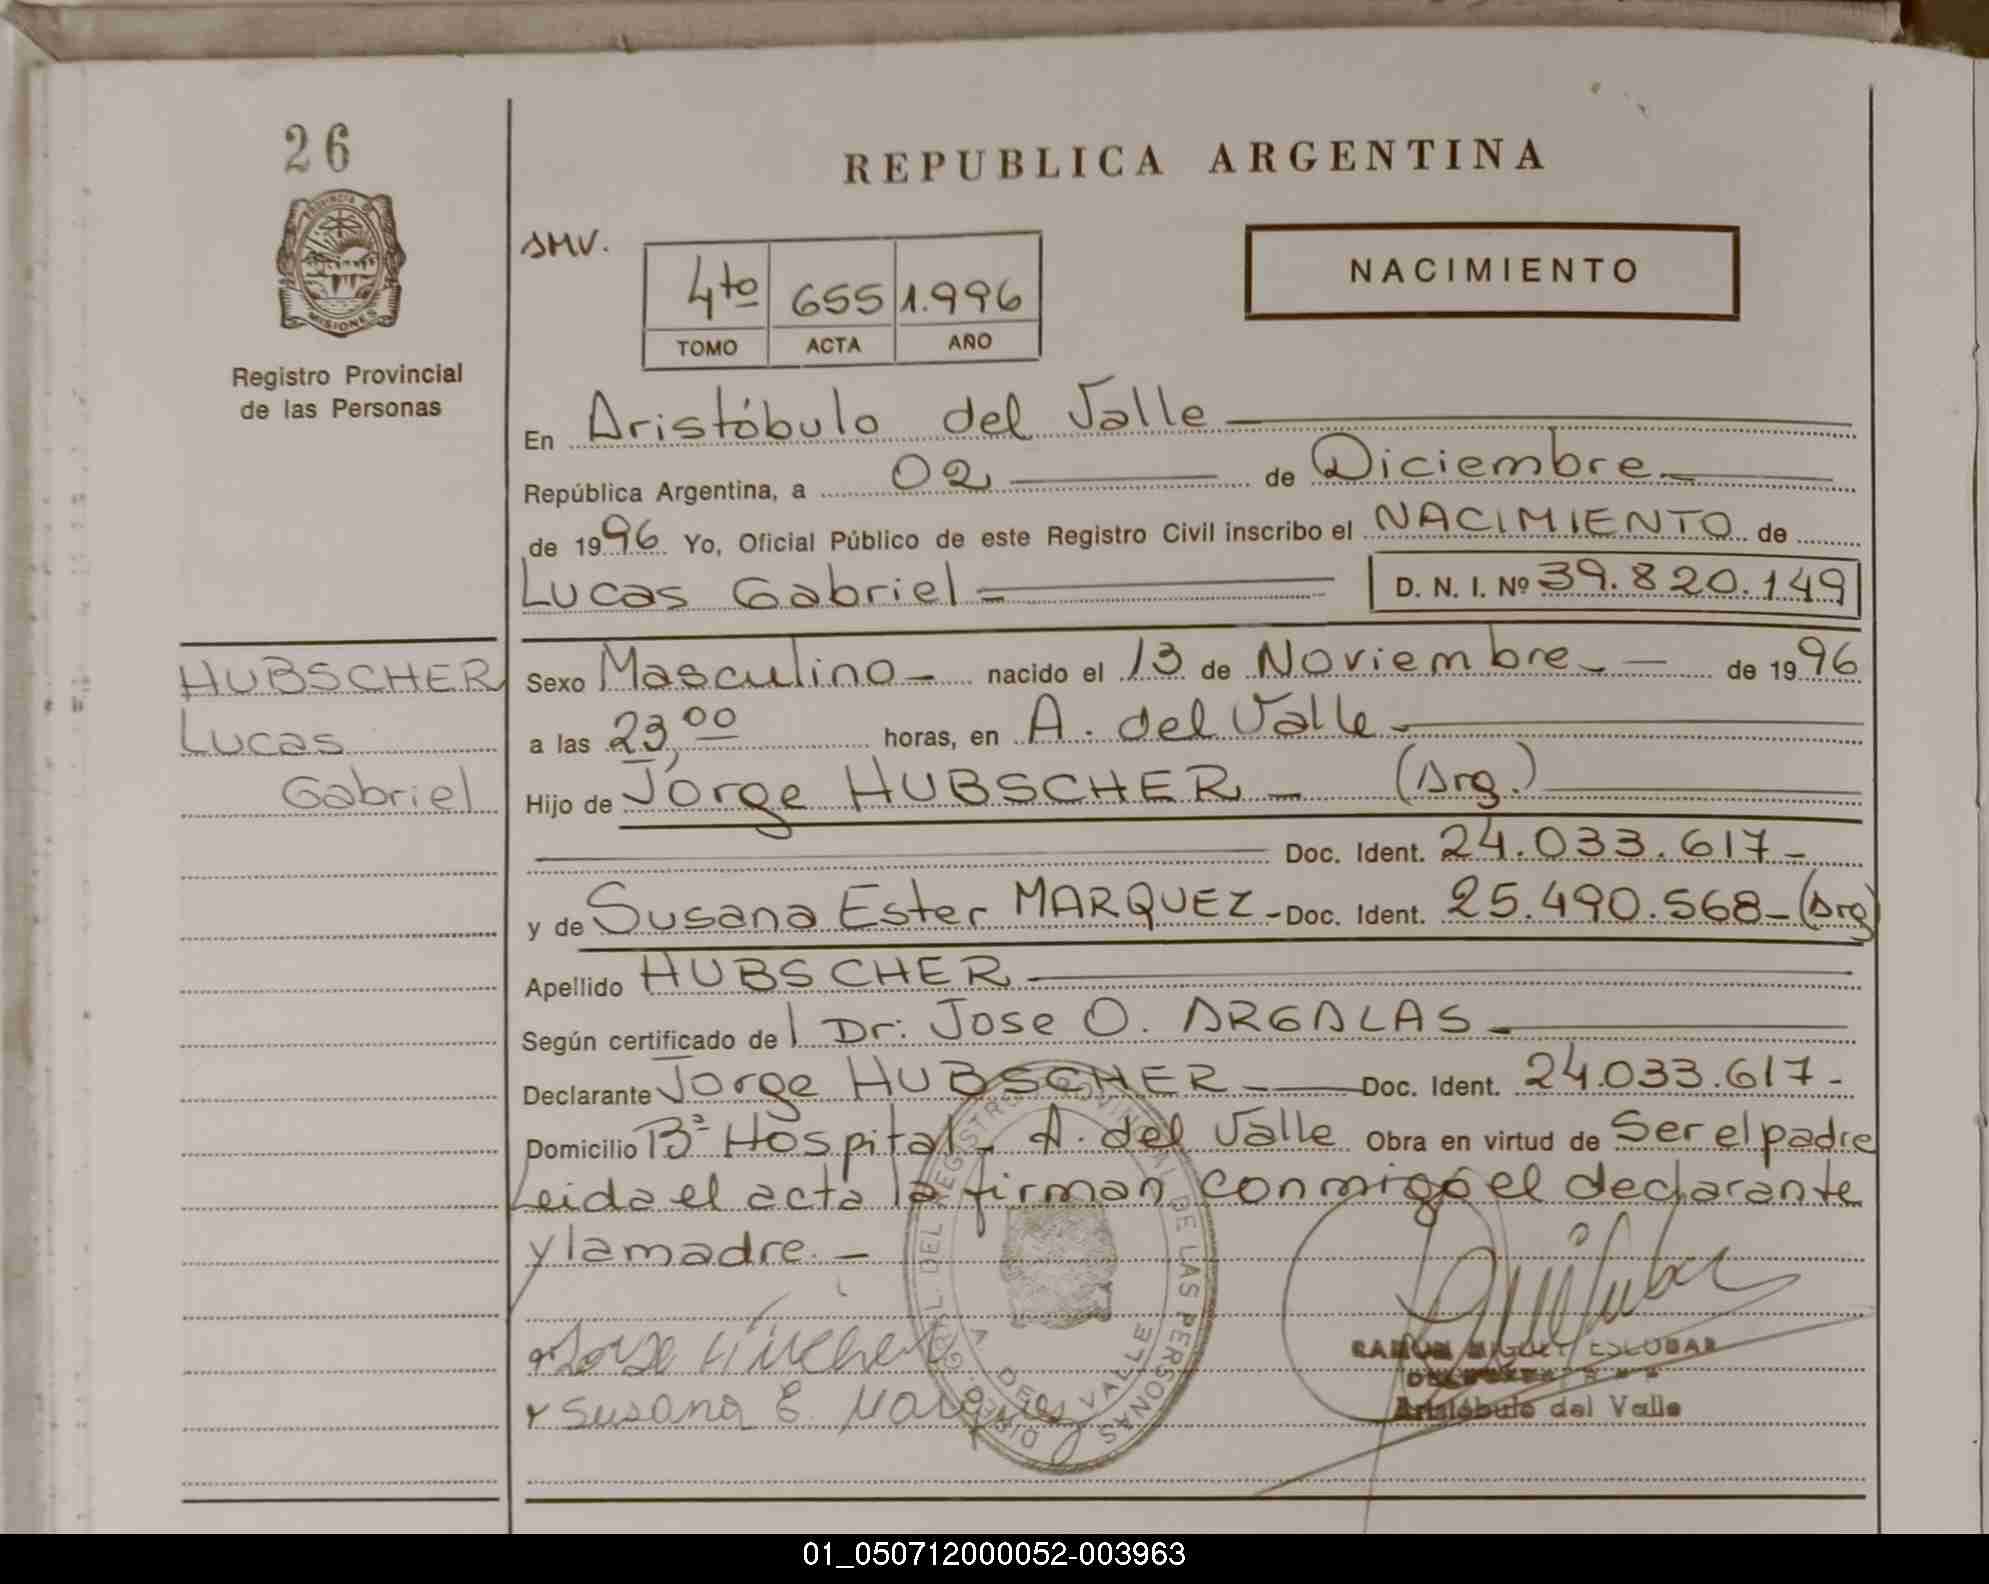 26
PROVINCIA DE
MISIONES
Registro Provincial
de las Personas
REPUBLICA ARGENTINA
SMV.
4to 655 1.996
TOMO ACTA AÑO
NACIMIENTO
En Aristóbulo del Valle
República Argentina, a 02 de Diciembre
de 1996 Yo, Oficial Público de este Registro Civil inscribo el NACIMIENTO de
Lucas Gabriel D. N. I. Nº 39.820.149
HUBSCHER
Lucas
Gabriel
Sexo Masculino nacido el 13 de Noviembre de 1996
a las 23,00 horas, en A. del Valle
Hijo de Jorge HUBSCHER (Arg.)
Doc. Ident. 24.033.617
y de Susana Ester MARQUEZ Doc. Ident. 25.490.568 (Arg)
Apellido HUBSCHER
Según certificado de Dr: Jose O. ARGALAS
Declarante Jorge HUBSCHER Doc. Ident. 24.033.617
Domicilio Bº Hospital A. del Valle Obra en virtud de Ser el padre
Leida el acta la firman conmigo el declarante
y la madre.
Susana E. Marquez
DEL REGISTRO PROVINCIAL DE LAS PERSONAS
DEL VALLE
RAMON MIGUEL ESCOBAR
Aristóbulo del Valle
01_050712000052-003963